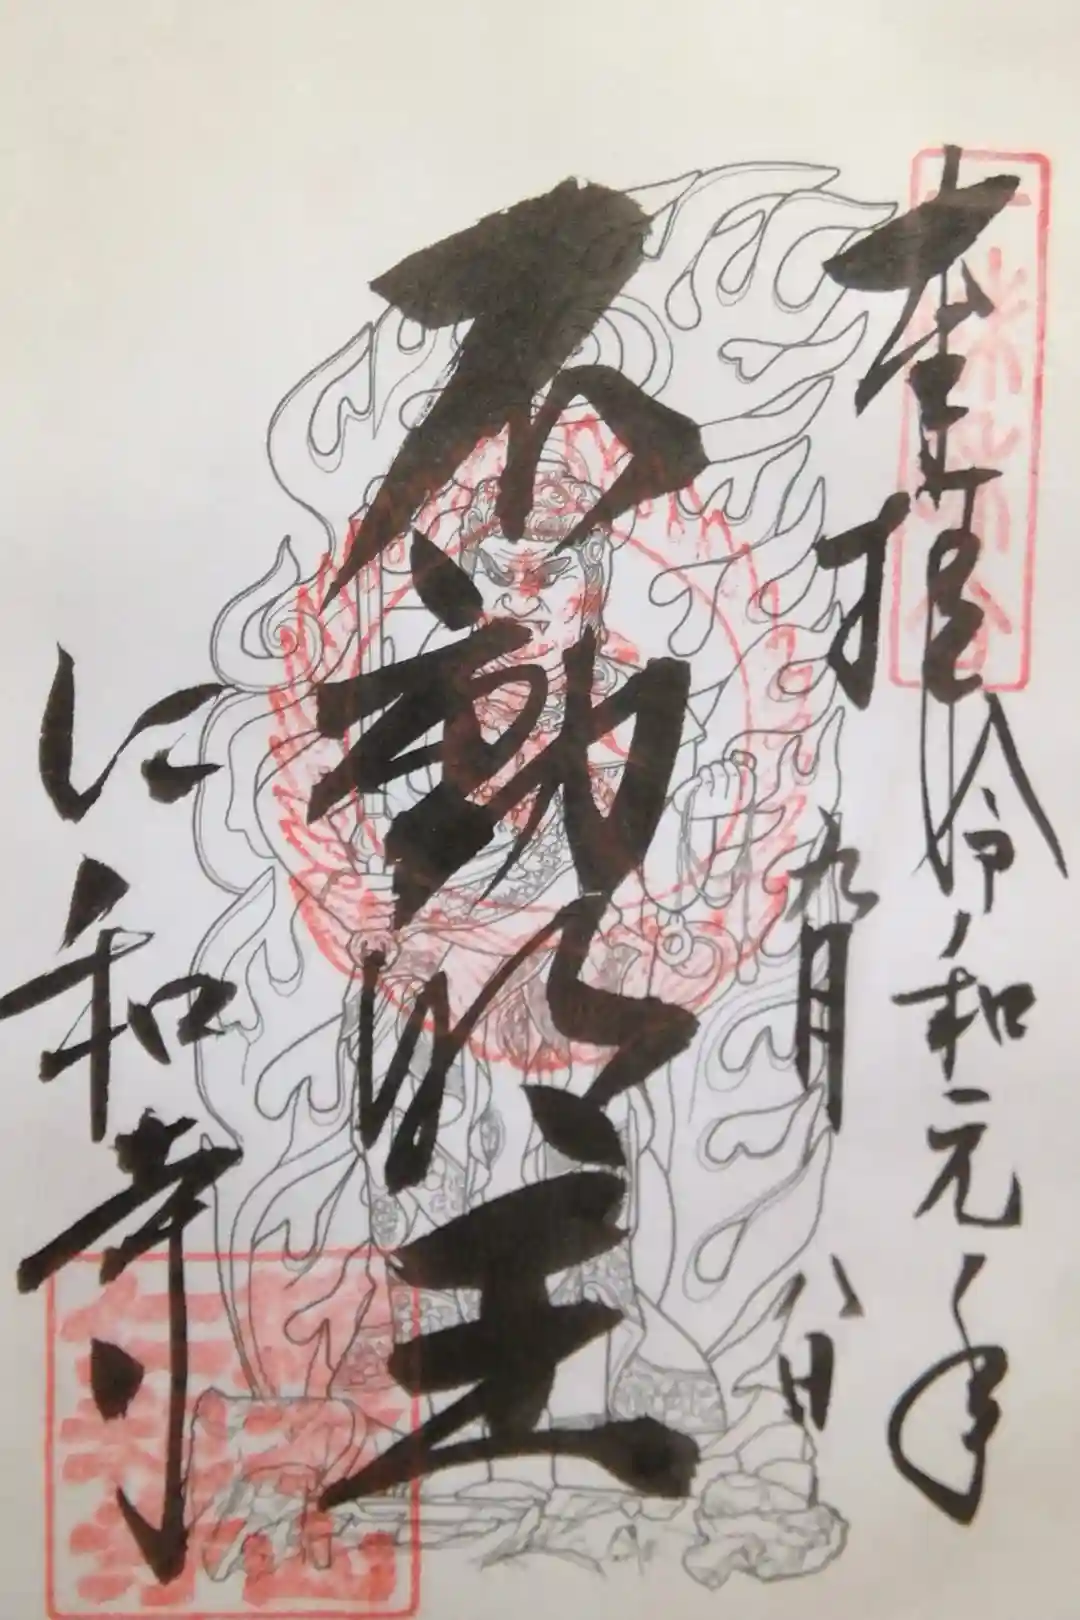 奉拝
令和元年
九月
八日
不動明王
仁和寺